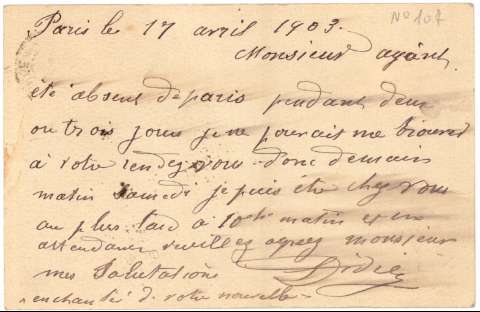 No 107
Paris le 17 avril 1903.
Monsieur ayant
été absent de paris pendant deux
ou trois jours je ne pouvait me trouver
à votre rendez vous donc demain
matin samedi je puis être chez vous
au plus tard à 10h matin et en
attendant veuillez agreez monsieur
mes Salutations Didier
enchanté de votre nouvelle